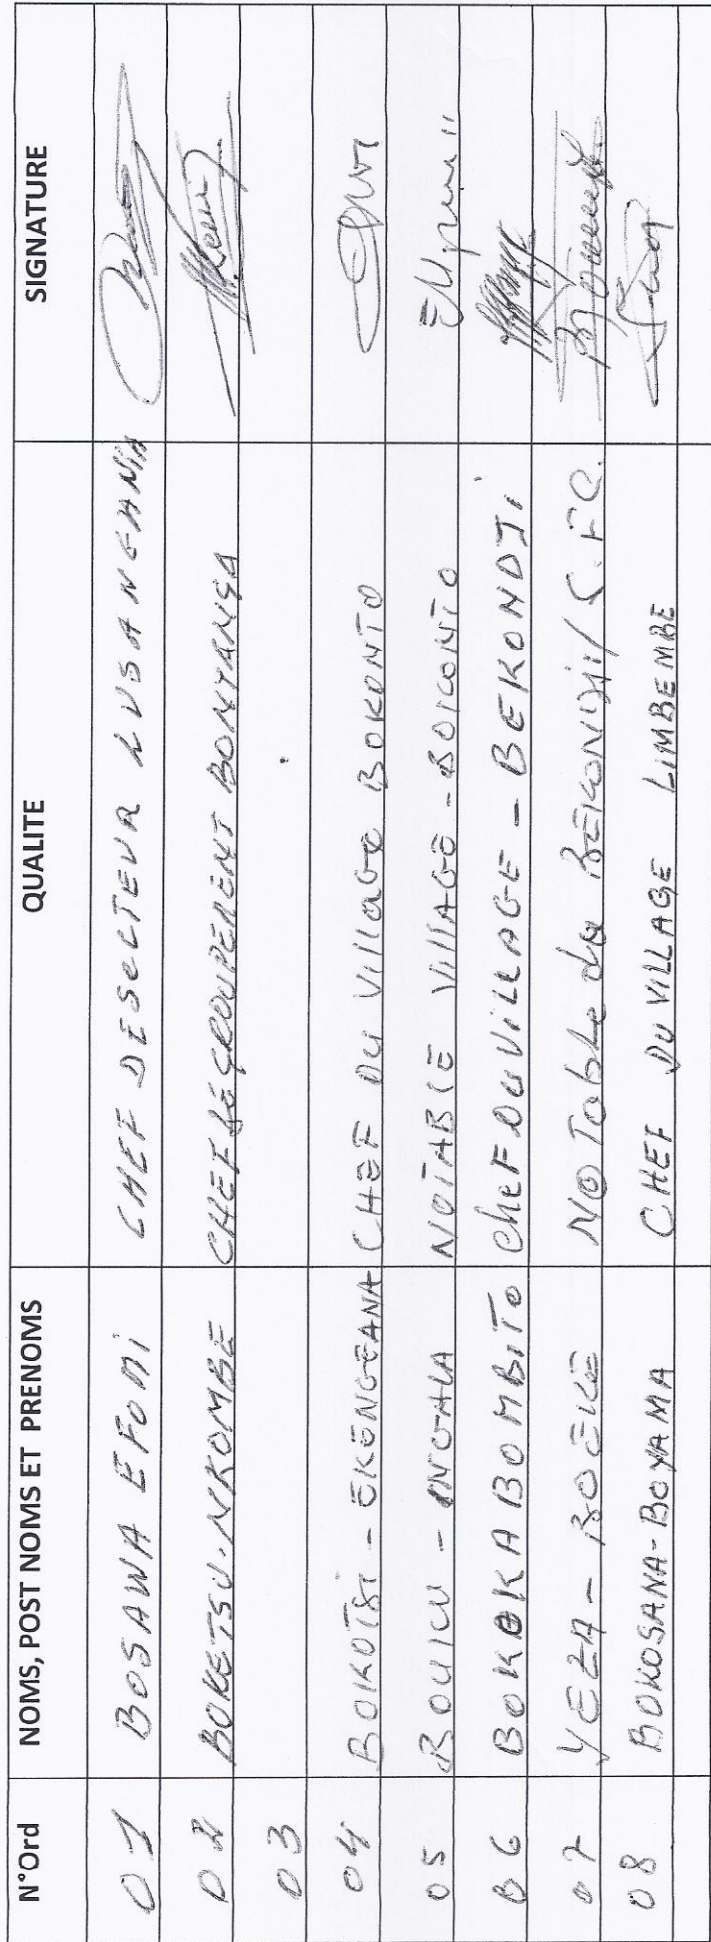 N°Ord NOMS, POST NOMS ET PRENOMS QUALITE SIGNATURE
01 BOSAWA EFOMI CHEF DE SECTEUR LUSANGANIA
02 BOKETSU-NKOMBE CHEF de GROUPEMENT BONYANGA
03
04 BOKOTSI - EKENGEANA CHEF DU Village BOKONTO
05 BOUKU - INGALA NOTABLE VillAGE - BOKONTO
06 BOKOKA BOMBITO cheF DU ViLLAGE - BEKONDJi
07 YEZA - BOEKE NOTable de BEKONDji/
08 BOKOSANA-BOYAMA CHEF DU VILLAGE LIMBEMBE